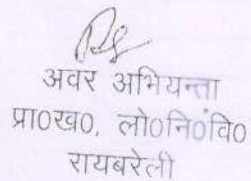 अवर अभियन्ता
प्रा०ख०, लो०नि०वि०
रायबरेली